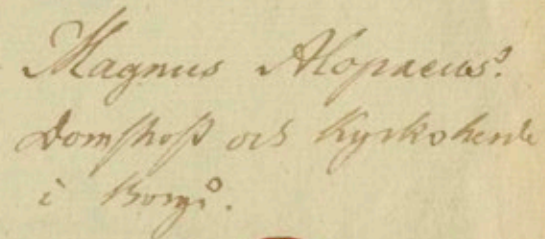 Magnus Alopaeus.
Domprost och Kyrkoherde
i Borgå.